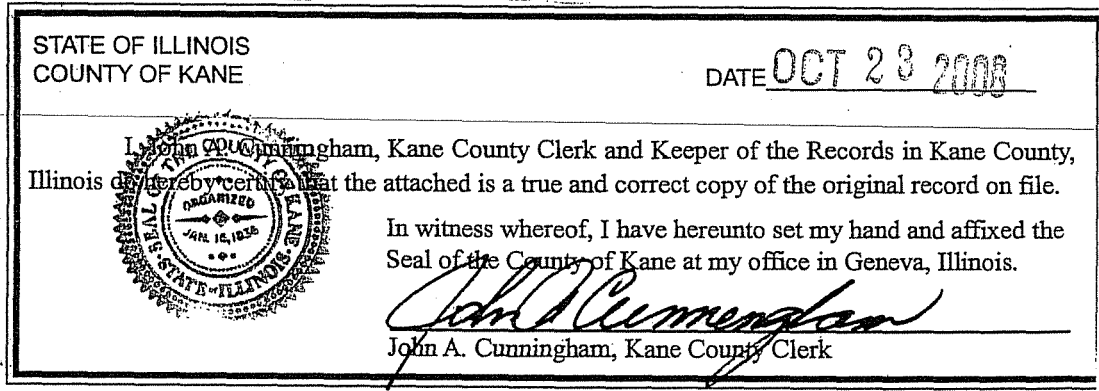 STATE OF ILLINOIS
COUNTY OF KANE
DATE OCT 23 2008
I, John A. Cunningham, Kane County Clerk and Keeper of the Records in Kane County,
Illinois do hereby certify that the attached is a true and correct copy of the original record on file.
SEAL OF THE COUNTY OF KANE
STATE OF ILLINOIS
ORGANIZED
JAN. 16, 1836
In witness whereof, I have hereunto set my hand and affixed the
Seal of the County of Kane at my office in Geneva, Illinois.
John A Cunningham
John A. Cunningham, Kane County Clerk